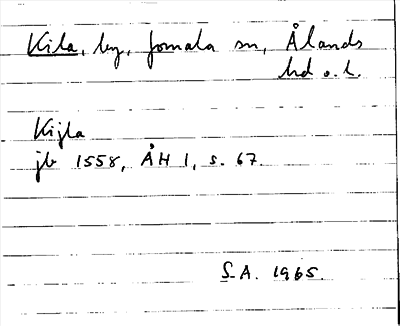 Kila, by, Jomala sn, Ålands
hd o. l.
Kijla
jb 1558, ÅH 1, s. 67.
S.A. 1965.